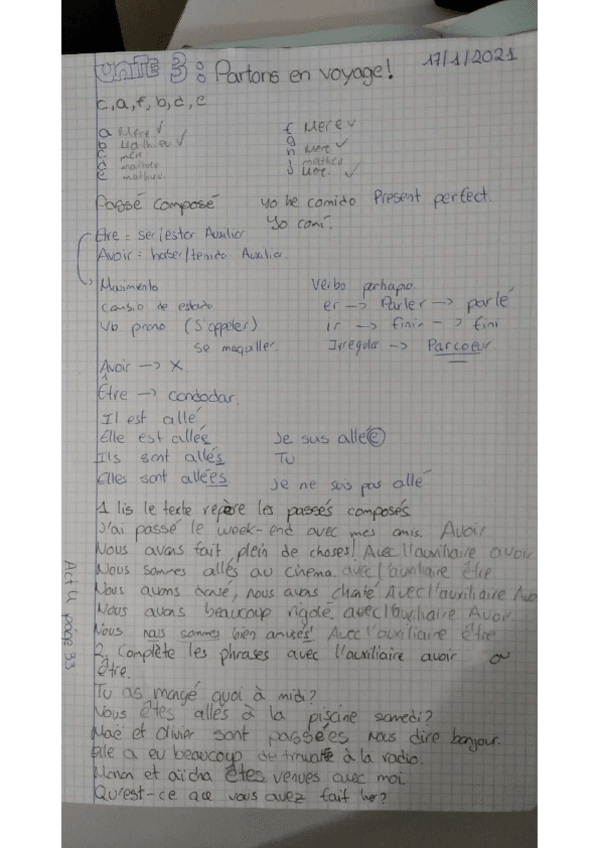 UNITÉ 3 : Partons en voyage! 17/1/2021
c, a, f, b, d, e
a Mère ✓ f Mère ✓
b Mathieu ✓ g
c mère h Mère ✓
d mathieu j mathieu
e mathieu. ✓
Passé composé yo he comido Present perfect.
Yo comí.
Être = ser/estar Auxiliar
Avoir = haber/tenido Auxiliar.
Movimiento Verbo
cambio de estado er -> Parler -> parlé
Vb prono (S'appeler) Ir -> finir -> fini
se maquiller. Irregular -> Parcoeur
Avoir -> X.
Être -> condodar.
Il est allé
Elle est allée Je suis allé(e)
Ils sont allés Tu
Elles sont allées Je ne suis pas allé
1 lis le texte repère les passés composés.
J'ai passé le week-end avec mes amis. Avoir
Nous avons fait plein de choses! Avec l'auxiliaire avoir
Nous sommes allés au cinema. avec l'auxiliaire être
Nous avons dansé, nous avons chanté Avec l'auxiliaire Avo
Nous avons beaucoup rigolé. avec l'auxiliaire Avoir
Nous nous sommes bien amusés! Avec l'auxiliaire être
2. Complète les phrases avec l'auxiliaire avoir ou
être.
Act 4 page 33
Tu as mangé quoi à midi?
Nous êtes allés à la piscine samedi?
Naë et Olivier sont passées nous dire bonjour.
Elle a eu beaucoup de à la radio.
Manon et aïcha êtes venues avec moi.
Qu'est-ce que vous avez fait hier?